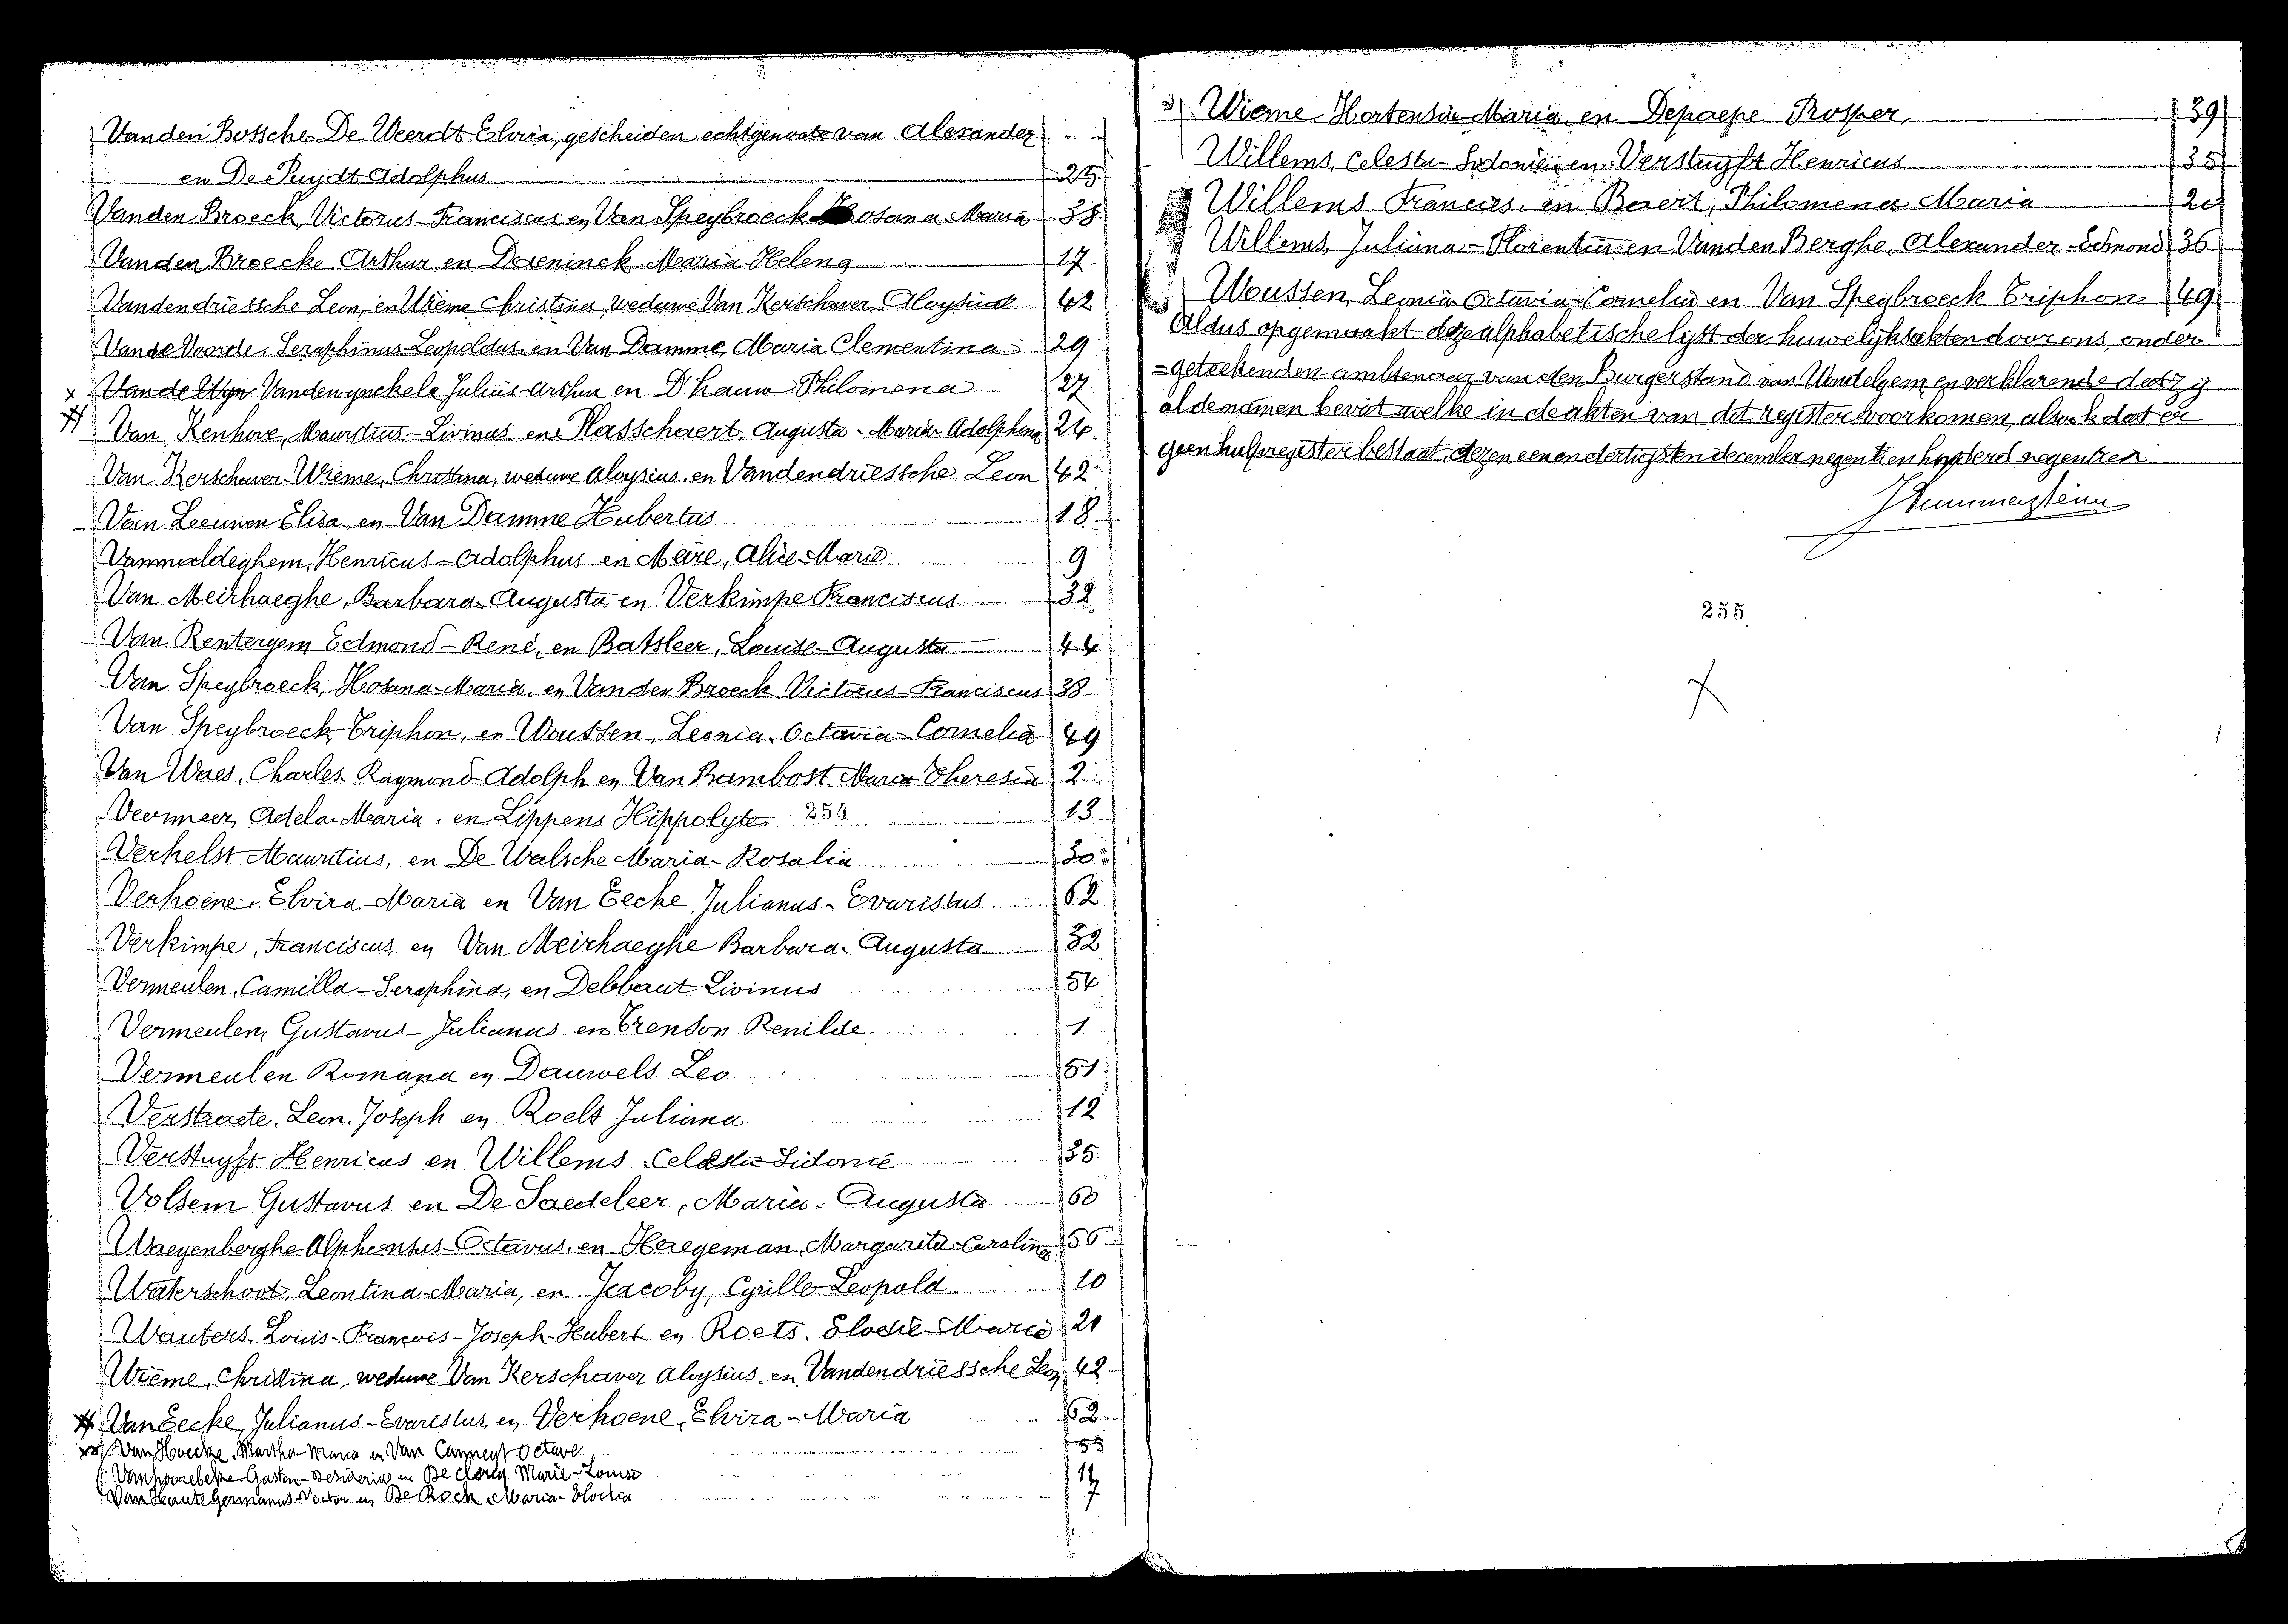 Vanden Bossche-De Weerdt Elvira, gescheiden echtgenoote van Alexander
en De Puydt Adolphus 25
Vanden Broeck, Victorus-Franciscus en Van Speybroeck Rosana-Maria 38
Vanden Broecke Arthur en Dereninck Maria-Helena 17
Vandendriessche Leon, en Wieme Christina, weduwe Van Kerschaver Aloysius 42
Vande Voorde, Seraphinus-Leopoldus, en Van Damme, Maria Clementina 29
Vandewynckele Julius-Arthur en D'hauw Philomena 27
Van Kenhove, Mauritius-Livinus en Plasschaert, Augusta-Maria-Adolphina 24
Van Kerschaver-Wieme, Christina, weduwe Aloysius, en Vandendriessche Leon 42
Van Leeuwen Elisa en Van Damme Hubertus 18
Vanmaldeghem, Henricus-Adolphus en Meire, Alice-Marie 9
Van Meirhaeghe, Barbara-Augusta en Verkimpe Franciscus 32
Van Rentergem Edmond-René, en Batsleer, Louise-Augusta 44
Van Speybroeck, Rosana-Maria, en Vanden Broeck Victorus-Franciscus 38
Van Speybroeck Triphon, en Woussen, Leonia-Octavia-Cornelia 49
Van Waes, Charles-Raymond-Adolph en Van Rambost Maria Theresia 2
Vermeer, Adela-Maria, en Lippens Hippolyte 254 13
Verhelst Mauritius, en De Walsche Maria-Rosalia 30
Verhoene, Elvira-Maria en Van Eecke, Julianus-Evaristus 62
Verkimpe, Franciscus, en Van Meirhaeghe Barbara-Augusta 32
Vermeulen, Camilla-Seraphina, en Debbaut Livinus 54
Vermeulen, Gustavus-Julianus en Trenson Renilde 1
Vermeulen Romana en Dauwels Leo 51
Verstraete, Leon-Joseph en Roels Juliana 12
Verstuyft Henricus en Willems Celesta Sidonie 35
Volsem Gustavus en De Saedeleer, Maria-Augusta 60
Waeyenberghe Alphonsus-Octavus, en Haegeman, Margarita-Carolina 56
Waterschoot, Leontina-Maria, en Jacoby, Cyrille-Leopold 10
Wauters, Louis-François-Joseph-Hubert en Roets, Elodie-Marie 21
Wieme, Christina, weduwe Van Kerschaver Aloysius, en Vandendriessche Leon 42
Van Eecke, Julianus-Evaristus, en Verhoene, Elvira-Maria 62
Van Hoecke, Martha-Maria en Van Canneyt Octave 55
Vanhoorebeke Gaston-Desiderius en De Clercq Marie-Louise 14
Van Haute Germanus-Victor en De Rock, Maria-Elodia 7
Wieme Hortensia-Maria, en Depaepe Prosper, 39
Willems, Celesta-Sidonie, en Verstuyft Henricus 35
Willems Francies, en Baert, Philomena Maria 20
Willems, Juliana-Florentina en Vanden Berghe, Alexander-Edmond 36
Woussen, Leonia Octavia-Cornelia en Van Speybroeck Triphon 49
Aldus opgemaakt deze alphabetische lijst der huwelijksakten door ons, onder-
=geteekenden ambtenaar van den Burgerstand van Wondelgem, en verklarende dat zij
al de namen bevat welke in de akten van dit register voorkomen, alsook dat er
geen hulpregister bestaat, dezen eenendertigsten december negentien honderd negentien
255